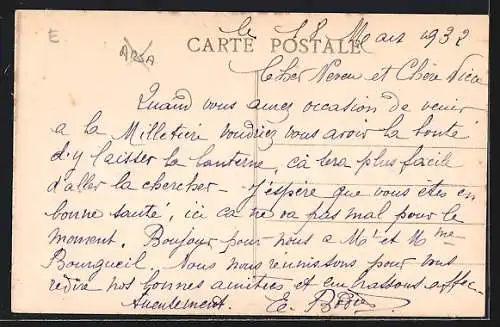 E
le 18 Mars 1932
CARTE POSTALE
Cher Neveu et Chère Nièce
Quand vous aurez occasion de venir
a la Milletière voudriez vous avoir la bonté
d'y laisser la lanterne, ca sera plus facile
d'aller la chercher - J'espère que vous êtes en
bonne santé, ici ca ne va pas mal pour le
moment. Boujour pour nous a Mr et Mme
Bourgueil. Nous nous réunissons pour vous
redire nos bonnes amitiés et embrassons affec-
tueusement. E.